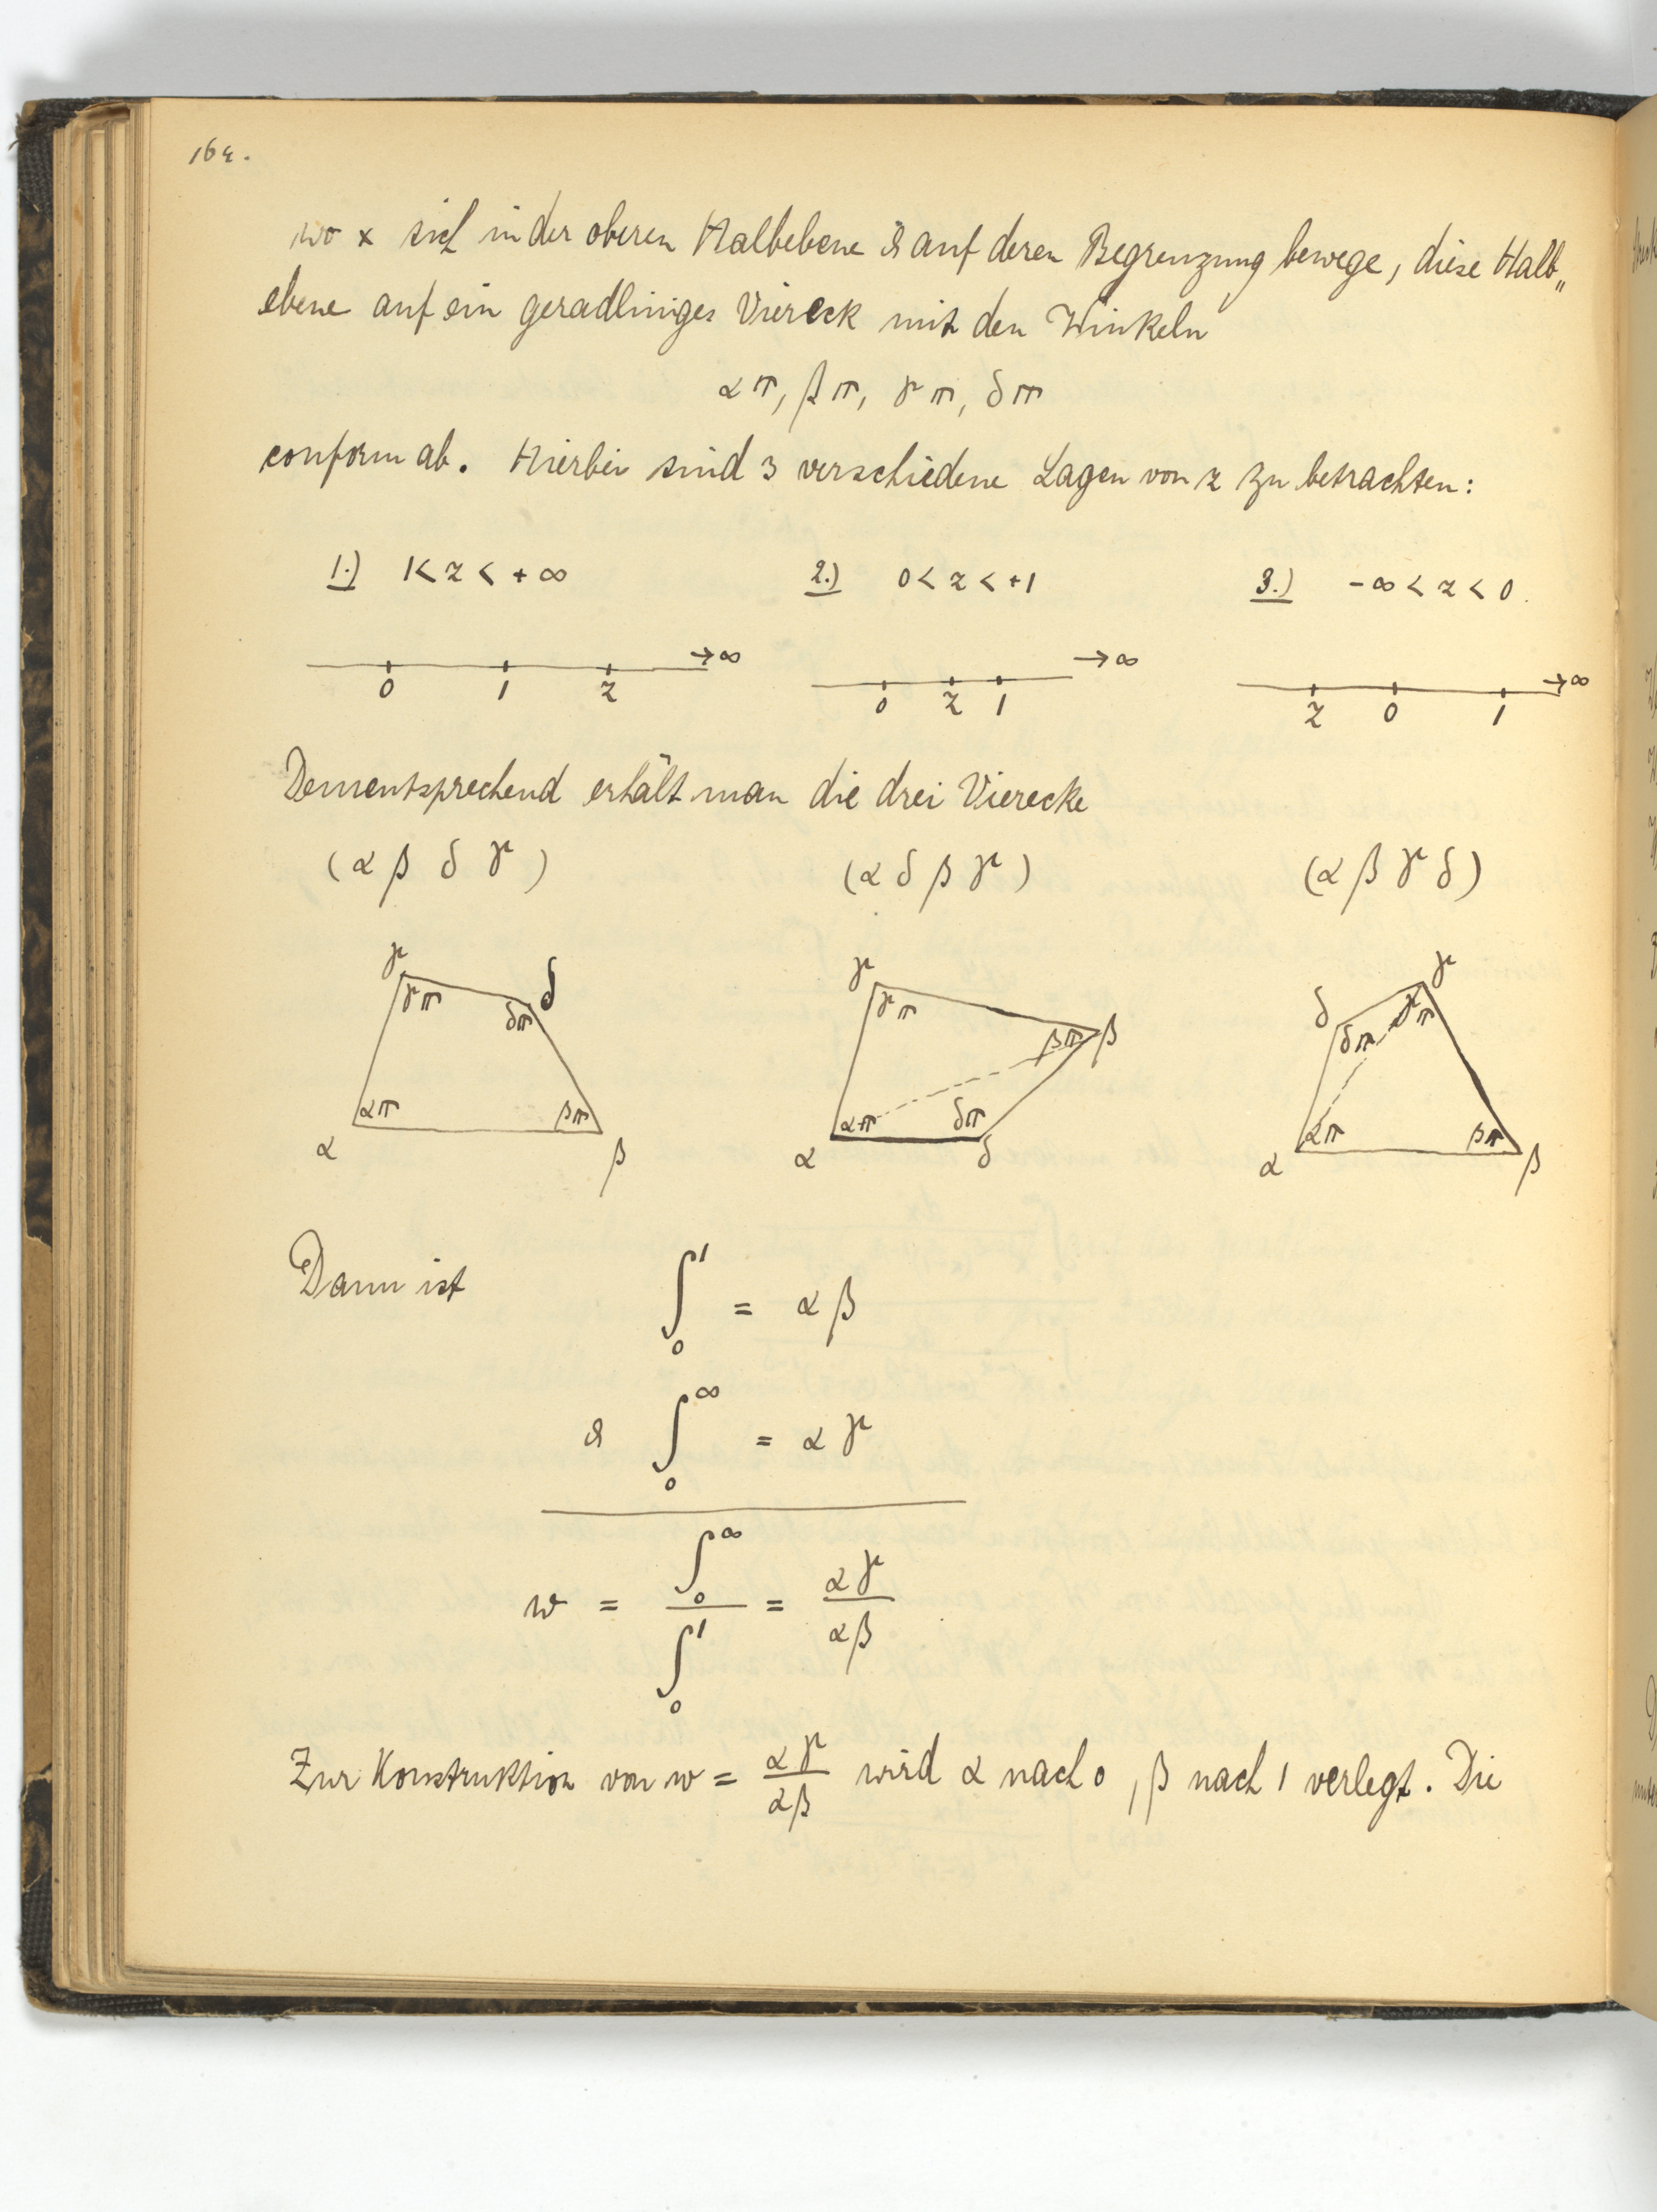 164.
wo x sich in der oberen Halbebene & auf deren Begrenzung bewege, diese Halb„
ebene auf ein geradliniges Viereck mit den Winkeln
απ, βπ, γπ, δπ
conform ab. Hierbei sind 3 verschiedene Lagen von z zu betrachten:
1.) 1 < z < + ∞
2.) 0 < z < +1
3.) - ∞ < z < 0.
0 1 z → ∞
0 z 1 → ∞
z 0 1 → ∞
Dementsprechend erhält man die drei Vierecke
(α β δ γ)
(α δ β γ)
(α β γ δ)
γ γπ δπ δ απ βπ α β
γ γπ βπ β απ δπ α δ
δ δπ γπ γ απ βπ α β
Dann ist ∫₀¹ = αβ
& ∫₀^∞ = αγ
w = ∫₀^∞ / ∫₀¹ = αγ / αβ
Zur Konstruktion von w = αγ / αβ wird α nach 0, β nach 1 verlegt. Die